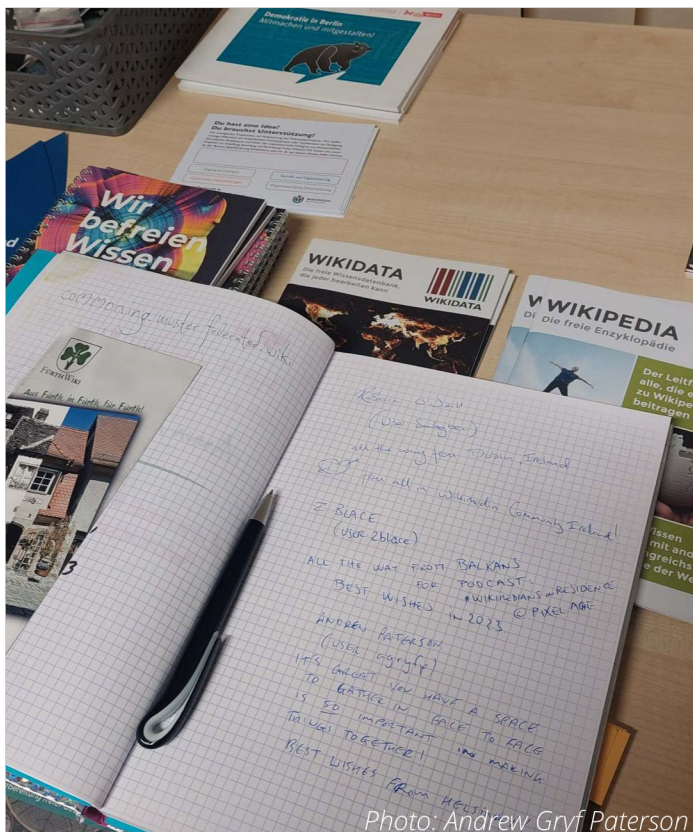 Demokratie in Berlin
Mitmachen und mitgestalten!
Du hast eine Idee?
Du brauchst Unterstützung!
Wir
befreien
Wissen
WIKIDATA
Die freie Wissensdatenbank,
die jeder bearbeiten kann
WIKIDATA
WIKIPEDIA
Die freie Enzyklopädie
Der Leitf
alle, die e
zu Wikipe
beitragen
issen
mit and
ngreichs
e der We
commoning.muster.federated.wiki
FürthWiki
Aus Fürth, in Fürth, für Fürth!
(User
all the way from Dublin, Ireland
from all in Wikimedia Community Ireland!
Z BLACE
(USER Zblace)
ALL THE WAY FROM BALKANS
FOR PODCAST.
#WIKIMEDIANSINRESIDENCE
BEST WISHES IN 2023
@PIXELACHE
ANDREW PATERSON
(USER agryfp)
IT'S GREAT YOU HAVE A SPACE
TO GATHER IN. FACE TO FACE
IS SO IMPORTANT IN MAKING
THINGS TOGETHER!
BEST WISHES FROM
Photo: Andrew Gryf Paterson